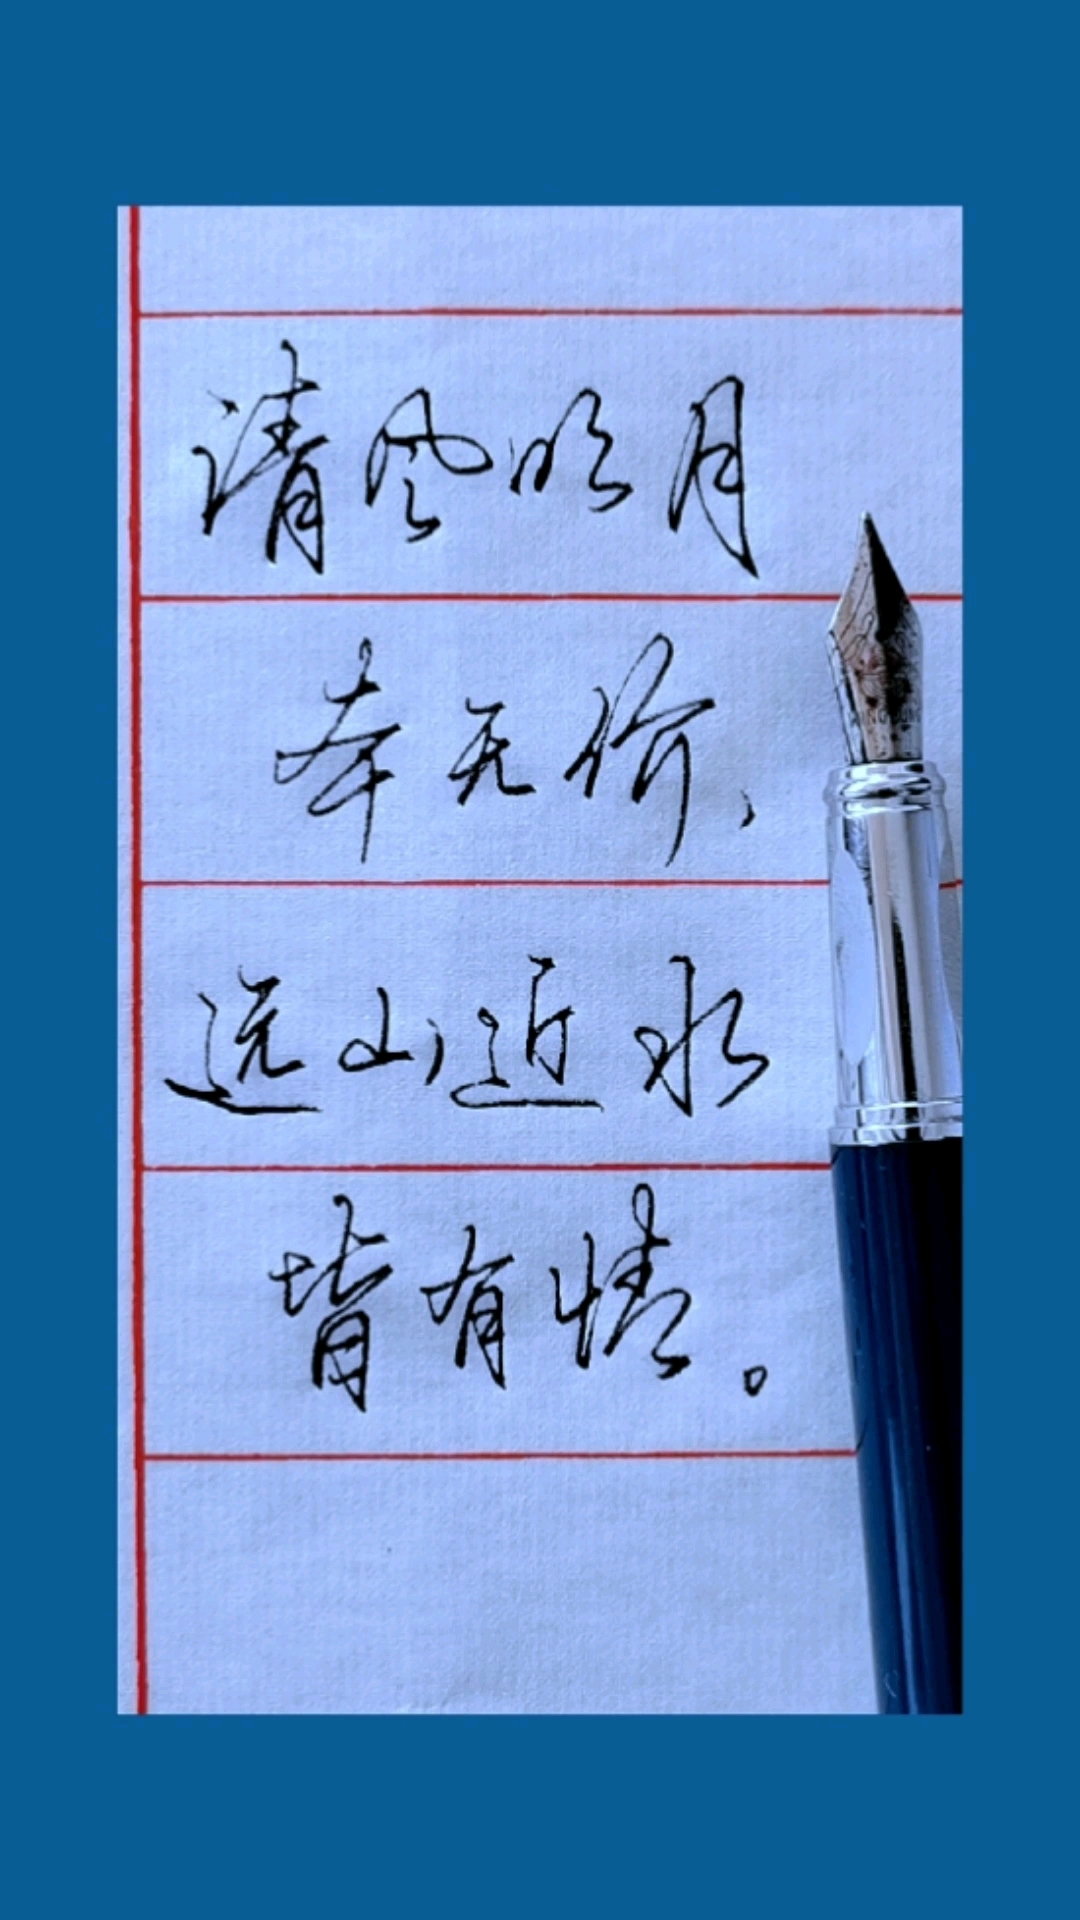 清风明月
本无价、
远山近水
皆有情。